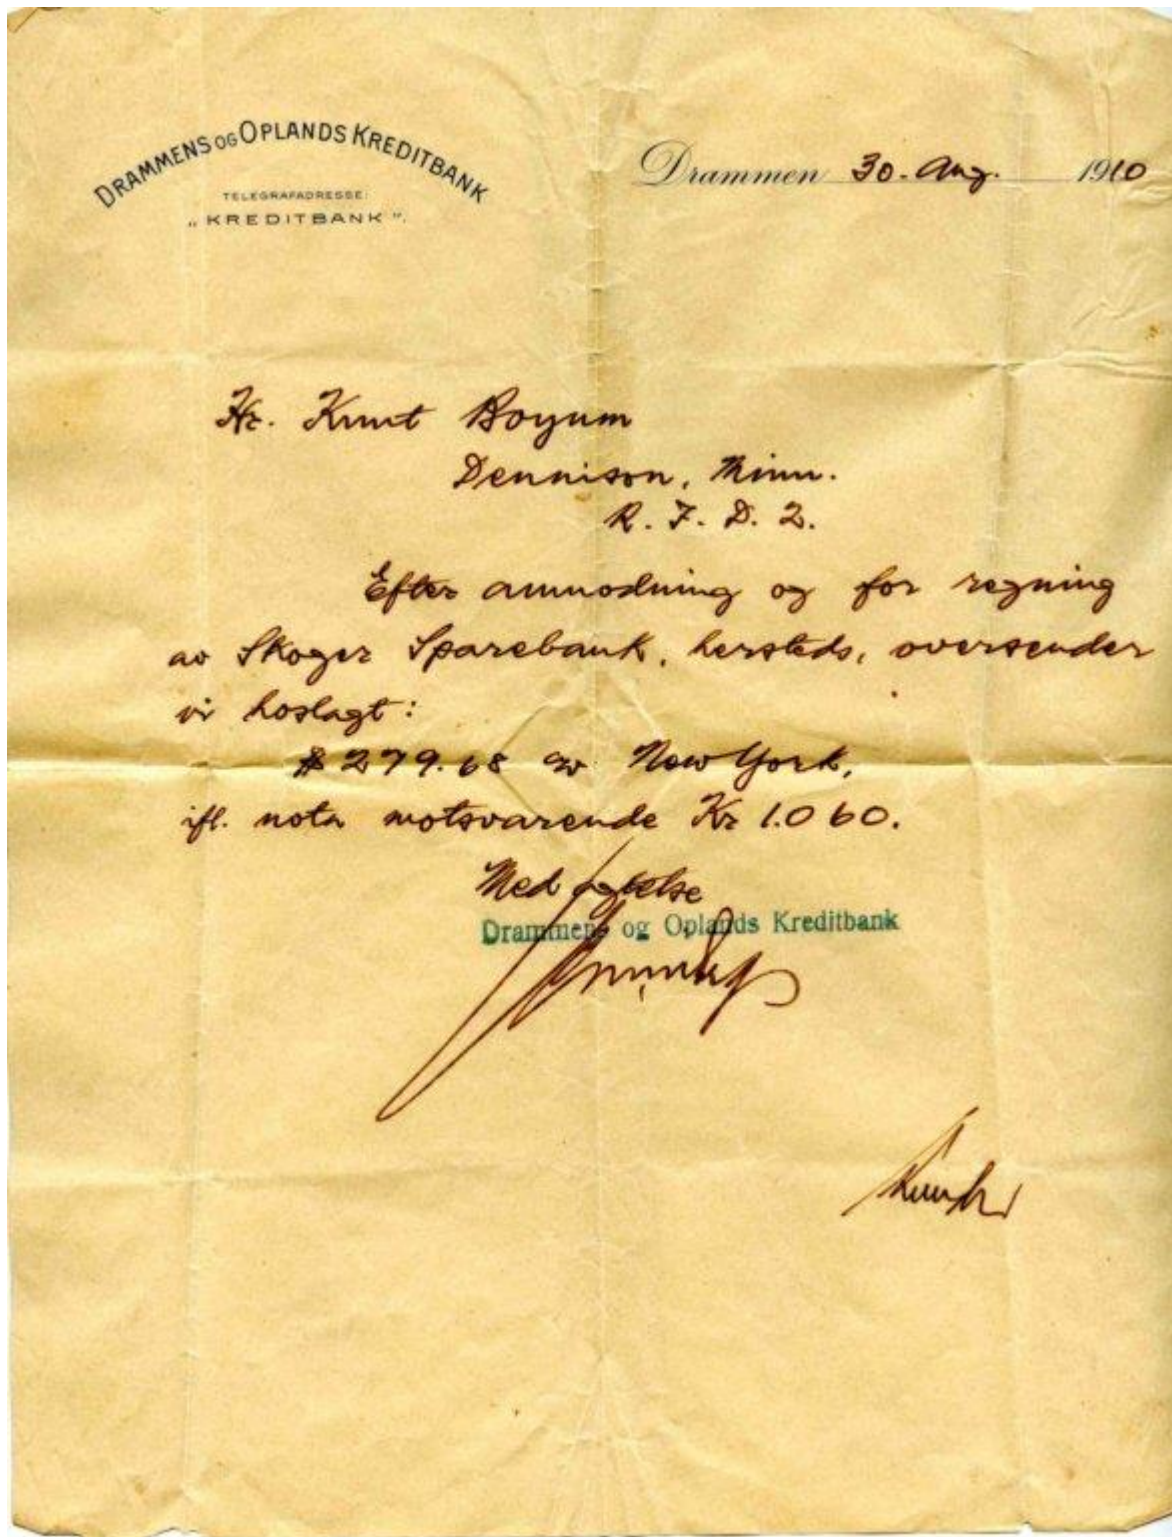 DRAMMENS OG OPLANDS KREDITBANK
TELEGRAFADRESSE:
„KREDITBANK".
Drammen 30. Aug. 1910
Hr. Knut Boyum
Dennison, Minn.
R. F. D. 2.
Efter anmodning og for regning
av Skoger Sparebank, hersteds, oversender
vi hoslagt:
$ 279.68 av New York,
ifl. nota motsvarende Kr 1.060.
Med agtelse
Drammens og Oplands Kreditbank